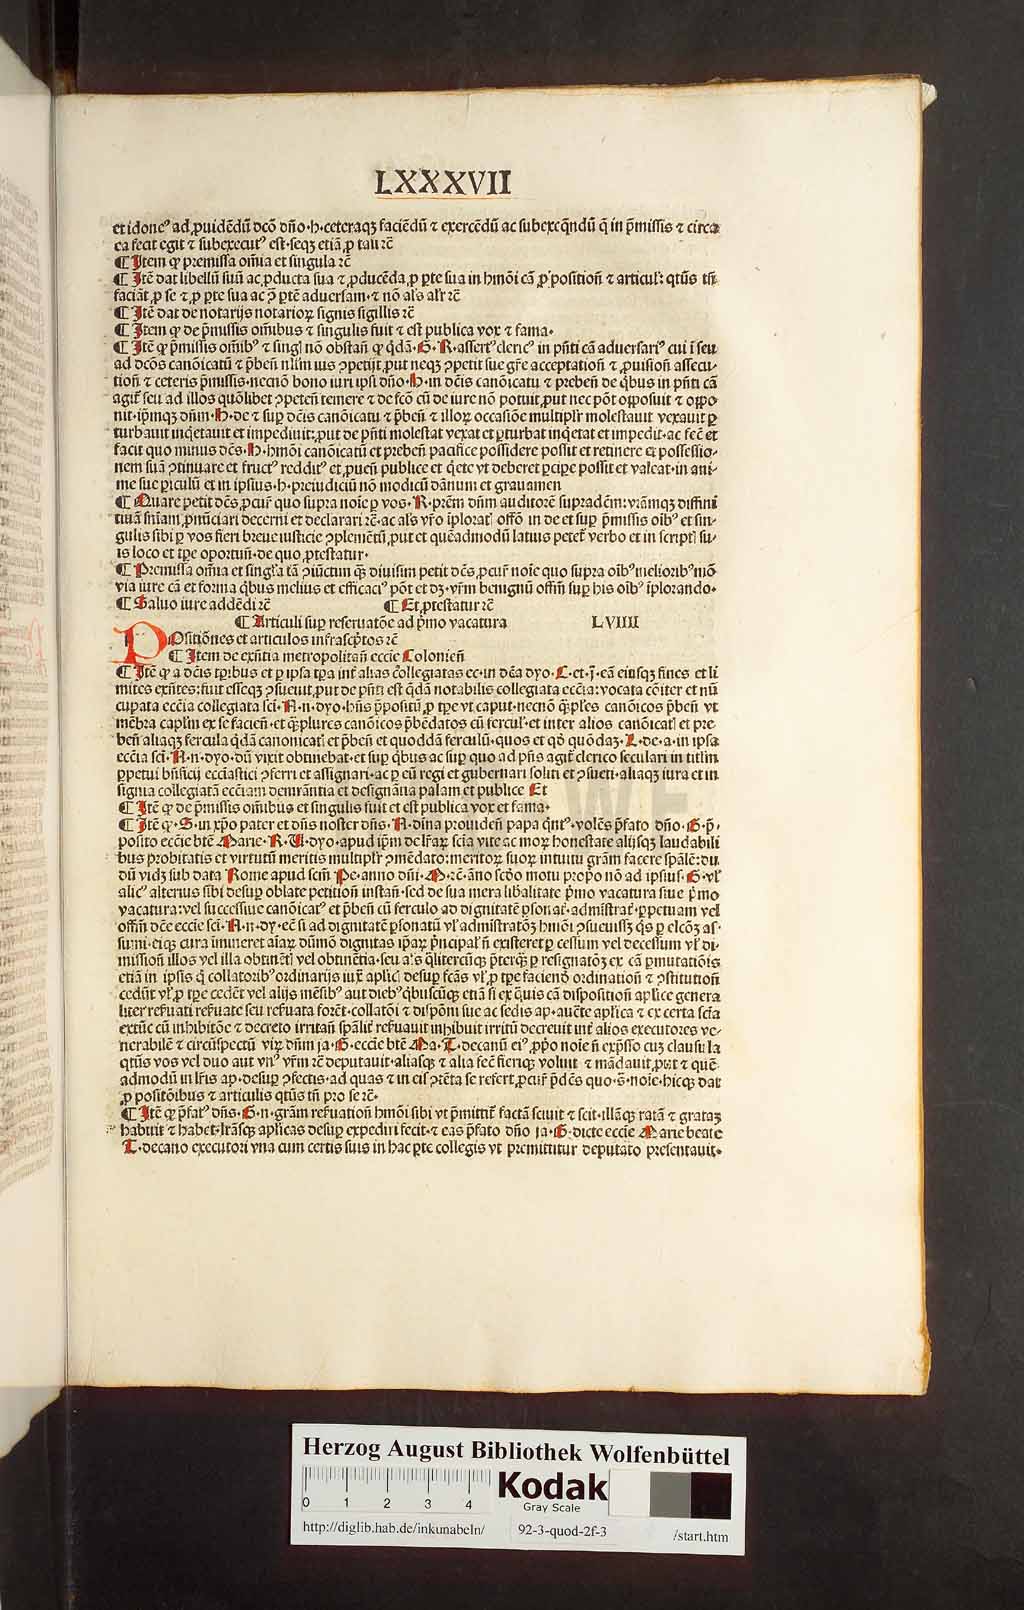 LXXXVII
et idoneꝰ ad ꝓuidēdū dcō dño·h·ceteraqꝫ faciēdū ⁊ exercēdū ac subexeq̄ndū q̄ in p̄missis ⁊ circa
ea fecit egit ⁊ subexecutꝰ est·seqꝫ etiā ꝓ tali ꝛc̄
¶ Item ꝙ premissa om̄ia et singula ꝛc̄
¶ Itē dat libellū suū ac ꝓducta sua ⁊ ꝓducēda ꝓ ꝑte sua in hmōi cā ꝓ positioñ ⁊ articul̕: qtūs tñ
faciāt ꝓ se ⁊ ꝓ ꝑte sua ac ꝯ̄ ꝑtē aduersam·⁊ nō al̕s al̕r ꝛc̄
¶ Itē dat de notarijs notarioꝝ signis sigillis ꝛc̄
¶ Item ꝙ de p̄missis om̄ibus ⁊ singulis fuit ⁊ est publica vox ⁊ fama·
¶ Itē ꝙ p̄missis om̄ibꝰ ⁊ singl̕ nō obstañ ꝙ q̄dā·G·R·assertꝰ clericꝰ in p̄nti cā aduersariꝰ cui ī seu
ad dcōs canōicatū ⁊ p̄beñ nl̕lm ius ꝯpetijt ꝓut neqꝫ ꝯpetit sue gr̄e acceptatioñ ⁊ ꝓuisioñ assecu-
tioñ ⁊ ceteris p̄missis·necnō bono iuri ipsi dño·H·in dcīs canōicatu ⁊ prebeñ de q̄bus in p̄nti cā
agit̄ seu ad illos quōlibet ꝯpeteñ temere ⁊ de fcō cū de iure nō potuit ꝓut nec pōt opposuit ⁊ oppo
nit·ip̄mqꝫ dñm·H·de ⁊ suꝑ dcīs canōicatu ⁊ p̄beñ ⁊ illoꝝ occasiōe multipl̕r molestauit vexauit ꝑ
turbauit inq̄etauit et impediuit:ꝓut de p̄nti molestat vexat et ꝑturbat inq̄etat et impedit·ac fec̄ et
facit quo minus dcs̄·H·hmōi canōicatū et prebeñ pacifice possidere possit et retinere et possessio-
nem suā ꝯtinuare et fructꝰ redditꝰ et ꝓueñ publice et q̄ete vt deberet ꝑciꝑe possit et valeat·in ani-
me sue ꝑiculū et in ipsius·h·preiudiciū nō modicū dānum et grauamen
¶ Quare petit dcs̄ ꝓcur̕ quo supra noīe ꝑ vos·R·prēm dñm auditorē supradcm̄:vr̄amqꝫ diffini
tiuā sñiam ꝓnūciari decerni et declarari ꝛc̄·ac al̕s vr̄o īplorat̕ offō in de et suꝑ p̄missis oībꝰ et sin-
gulis sibi ꝑ vos fieri breue iusticie ꝯplemētū ꝓut et quēadmodū latius petet̄ verbo et in script̕ su-
is loco et tꝑe oportuñ·de quo ꝓtestatur·
¶ Premissa om̄ia et singl̕a tā ꝯiūctim qꝫ̄ diuisim petit dcs̄ ꝓcur̕ noīe quo supra oībꝰ melioribꝰ mō
via iure cā et forma q̄bus melius et efficaciꝰ pōt et dꝫ·vr̄m benignū offm̄ suꝑ his oībꝰ īplorando·
¶ Saluo iure addēdi ꝛc̄ ¶ Et ꝓtestatur ꝛc̄
¶ Articuli suꝑ reseruatōe ad p̄mo vacatura LVIIII
POsitiōnes et articulos infrascp̄tos ꝛc̄
¶ Item de exñtia metropolitañ eccīe Colonieñ
¶ Itē ꝙ a dcīs tꝑibus et ꝑ ipsa tꝑa int̄ alias collegiatas ec·in dcā dyo·C·et·ī·eā eiusqꝫ fines et li
mites exñtes:fuit esseqꝫ ꝯsueuit ꝓut de p̄nti est q̄dā notabilis collegiata eccīa:vocata cōiter et nū
cupata eccīa collegiata sci̅·A·n·dyo·hñs p̄positū ꝓ tꝑe vt caput·necnō qꝫ̄ples canōicos p̄beñ vt
mēbra capl̕m ex se facieñ·et qꝫ̄plures canōicos p̄bēdatos cū fercul̕·et inter alios canōicat̕ et pre-
beñ aliaqꝫ fercula q̄dā canonicat̕ et p̄beñ et quoddā ferculū·quos et qō quōdaꝫ·L·de·a·in ipsa
eccīa sci̅·A·n·dyo·dū vixit obtinebat·et suꝑ q̄bus ac suꝑ quo ad p̄ñs agit̄ clerico seculari in titl̕m
ꝑpetui bñficij eccīastici ꝯferri et assignari·ac ꝑ eū regi et gubernari soliti et ꝯsueti·aliaqꝫ iura et in
signia collegiatā eccīam denrāntia et designātia palam et publice Et
¶ Itē ꝙ de p̄missis om̄ibus et singulis fuit et est publica vox et fama·
¶ Itē ꝙ·S·in xp̄o pater et dñs noster dñs·N·dīna prouideñ papa q̄ntꝰ·volēs p̄fato dño·G·p̄·
posito eccīe btē Marie·R·U·dyo·apud ip̄m de lr̄aꝝ scīa vite ac moꝝ honestate alijsqꝫ laudabili
bus probitatis et virtutū meritis multipl̕r ꝯmēdato:meritoꝝ suoꝝ intuitu grām facere spālē:du
dū vidꝫ sub data Rome apud scm̄ Pe·anno dñi·M·ꝛc̄·āno scd̄o motu prop̄o nō ad ipsius·G·vl̕
alicꝰ alterius sibi desuꝑ oblate petitioñ instañ·sed de sua mera libalitate p̄mo vacatura siue p̄mo
vacatura:vel successiue canōicatꝰ et p̄beñ cū ferculo ad dignitatē ꝑsonat̄·admistrat̄·ꝑpetuam vel
offm̄ dcē eccīe sci̅·A·n·dy·ec̄ si ad dignitatē ꝑsonatū vl̕ admistratōꝫ hmōi ꝯsueuissꝫ q̄s ꝑ elcōꝫ as-
sumi·eiqꝫ cura īmineret aīaꝝ dūmō dignitas ip̄aꝝ p̄ncipal̕ñ existeret ꝑ cessum vel decessum vl̕ di-
missioñ illos vel illa obtinēt̕ vel obtinētia·seu al̕s q̄litercūqꝫ p̄terqꝫ̄ ꝑ resignatōꝫ ex cā ꝑmutatiōis
etiā in ipsis q̄ collatoribꝰ ordinarijs iur̄ aplic̕ desuꝑ fcās vl̕ ꝓ tꝑe faciend̕ ordinatioñ ⁊ ꝯstitutioñ
cedūt vl̕ ꝓ tꝑe cedēt vel alijs mēsibꝰ aut diebꝰ q̄buscūqꝫ etiā si ex q̄uis cā dispositioñ aplice genera
liter res̄uati res̄uate seu res̄uata forēt·collatōi ⁊ disp̄oni sue ac sedis ap·auctē aplica ⁊ ex certa sciā
extūc cū inhibitōe ⁊ decreto irritañ spālit̄ res̄uauit inhibuit irritū decreuit int̄ alios executores ve-
nerabilē ⁊ circūspectū virꝫ dñm ja·G·eccīe btē Ma·T·decanū eiꝰ ꝓp̄o noīe ñ exp̄sso cuꝫ clausula
qtūs vos vel duo aut vnꝰ vr̄m ꝛc̄ deputauit·aliasqꝫ ⁊ alia fec̄ fieriqꝫ voluit ⁊ mādauit ꝓut ⁊ quē-
admodū in lr̄is ap·desuꝑ ꝯfectis·ad quas ⁊ in eis ꝯtēta se refert ꝓcur̕ p̄dcs̄ quo·s̄·noīe·hicqꝫ dat
ꝓ positōibus ⁊ articulis qtūs tñ pro se ꝛc̄·
¶ Itē ꝙ p̄fatꝰ dñs·G·n·grām res̄uatioñ hmōi sibi vt p̄mittit̄ factā sciuit ⁊ scit·illāqꝫ ratā ⁊ grataꝫ
habuit ⁊ habet·lr̄asqꝫ aplicas desuꝑ expediri fecit·⁊ eas p̄fato dño ja·G·dicte eccīe Marie beate
T·decano executori vna cum certis suis in hac ꝑte collegis vt premittitur deputato presentauit·
Herzog August Bibliothek Wolfenbüttel
0 1 2 3 4
Kodak
Gray Scale
http://diglib.hab.de/inkunabeln/ 92-3-quod-2f-3 /start.htm